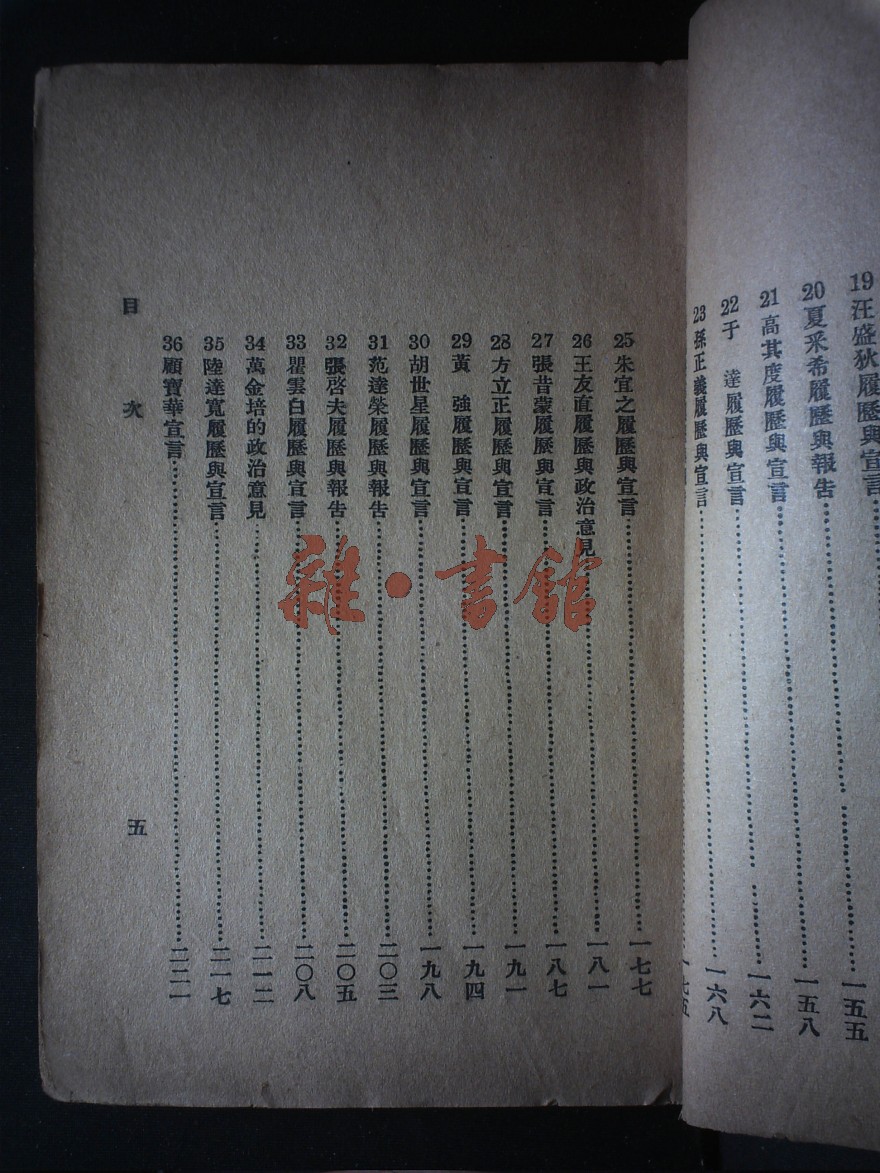 19 汪盛狄履歷與宣言……一五五
20 夏釆希履歷與報告……一五八
21 高其度履歷與宣言……一六二
22 于　達履歷與宣言……一六八
23 孫正義履歷與宣言……一七五
25 朱宜之履歷與宣言……一七七
26 王友直履歷與政治意見……一八一
27 張昔蒙履歷與宣言……一八七
28 方立正履歷與宣言……一九一
29 黃　強履歷與宣言……一九四
30 胡世星履歷與宣言……一九八
31 范達榮履歷與報告……二〇三
32 張啓夫履歷與報告……二〇五
33 瞿雲白履歷與宣言……二〇八
34 萬金培的政治意見……二一二
35 陸達寬履歷與宣言……二一七
36 顧寶華宣言……二二一
目次
五
雜·書館